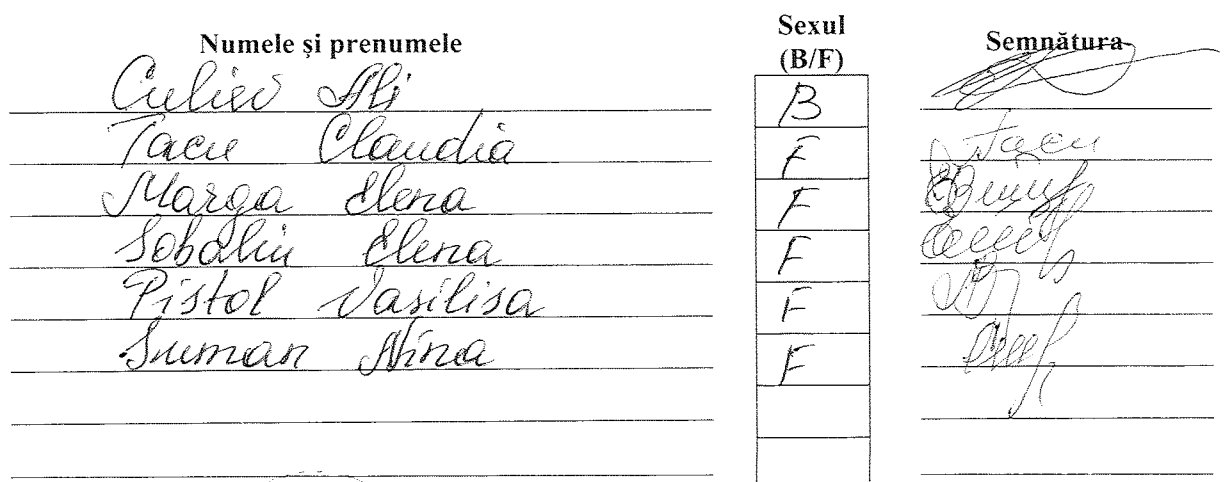 Numele și prenumele Sexul (B/F) Semnătura
Culiev Ali B
Tacu Claudia F Tacu
Marga Elena F
Sobaliu Elena F
Pistol Vasilisa F
Suman Nina F